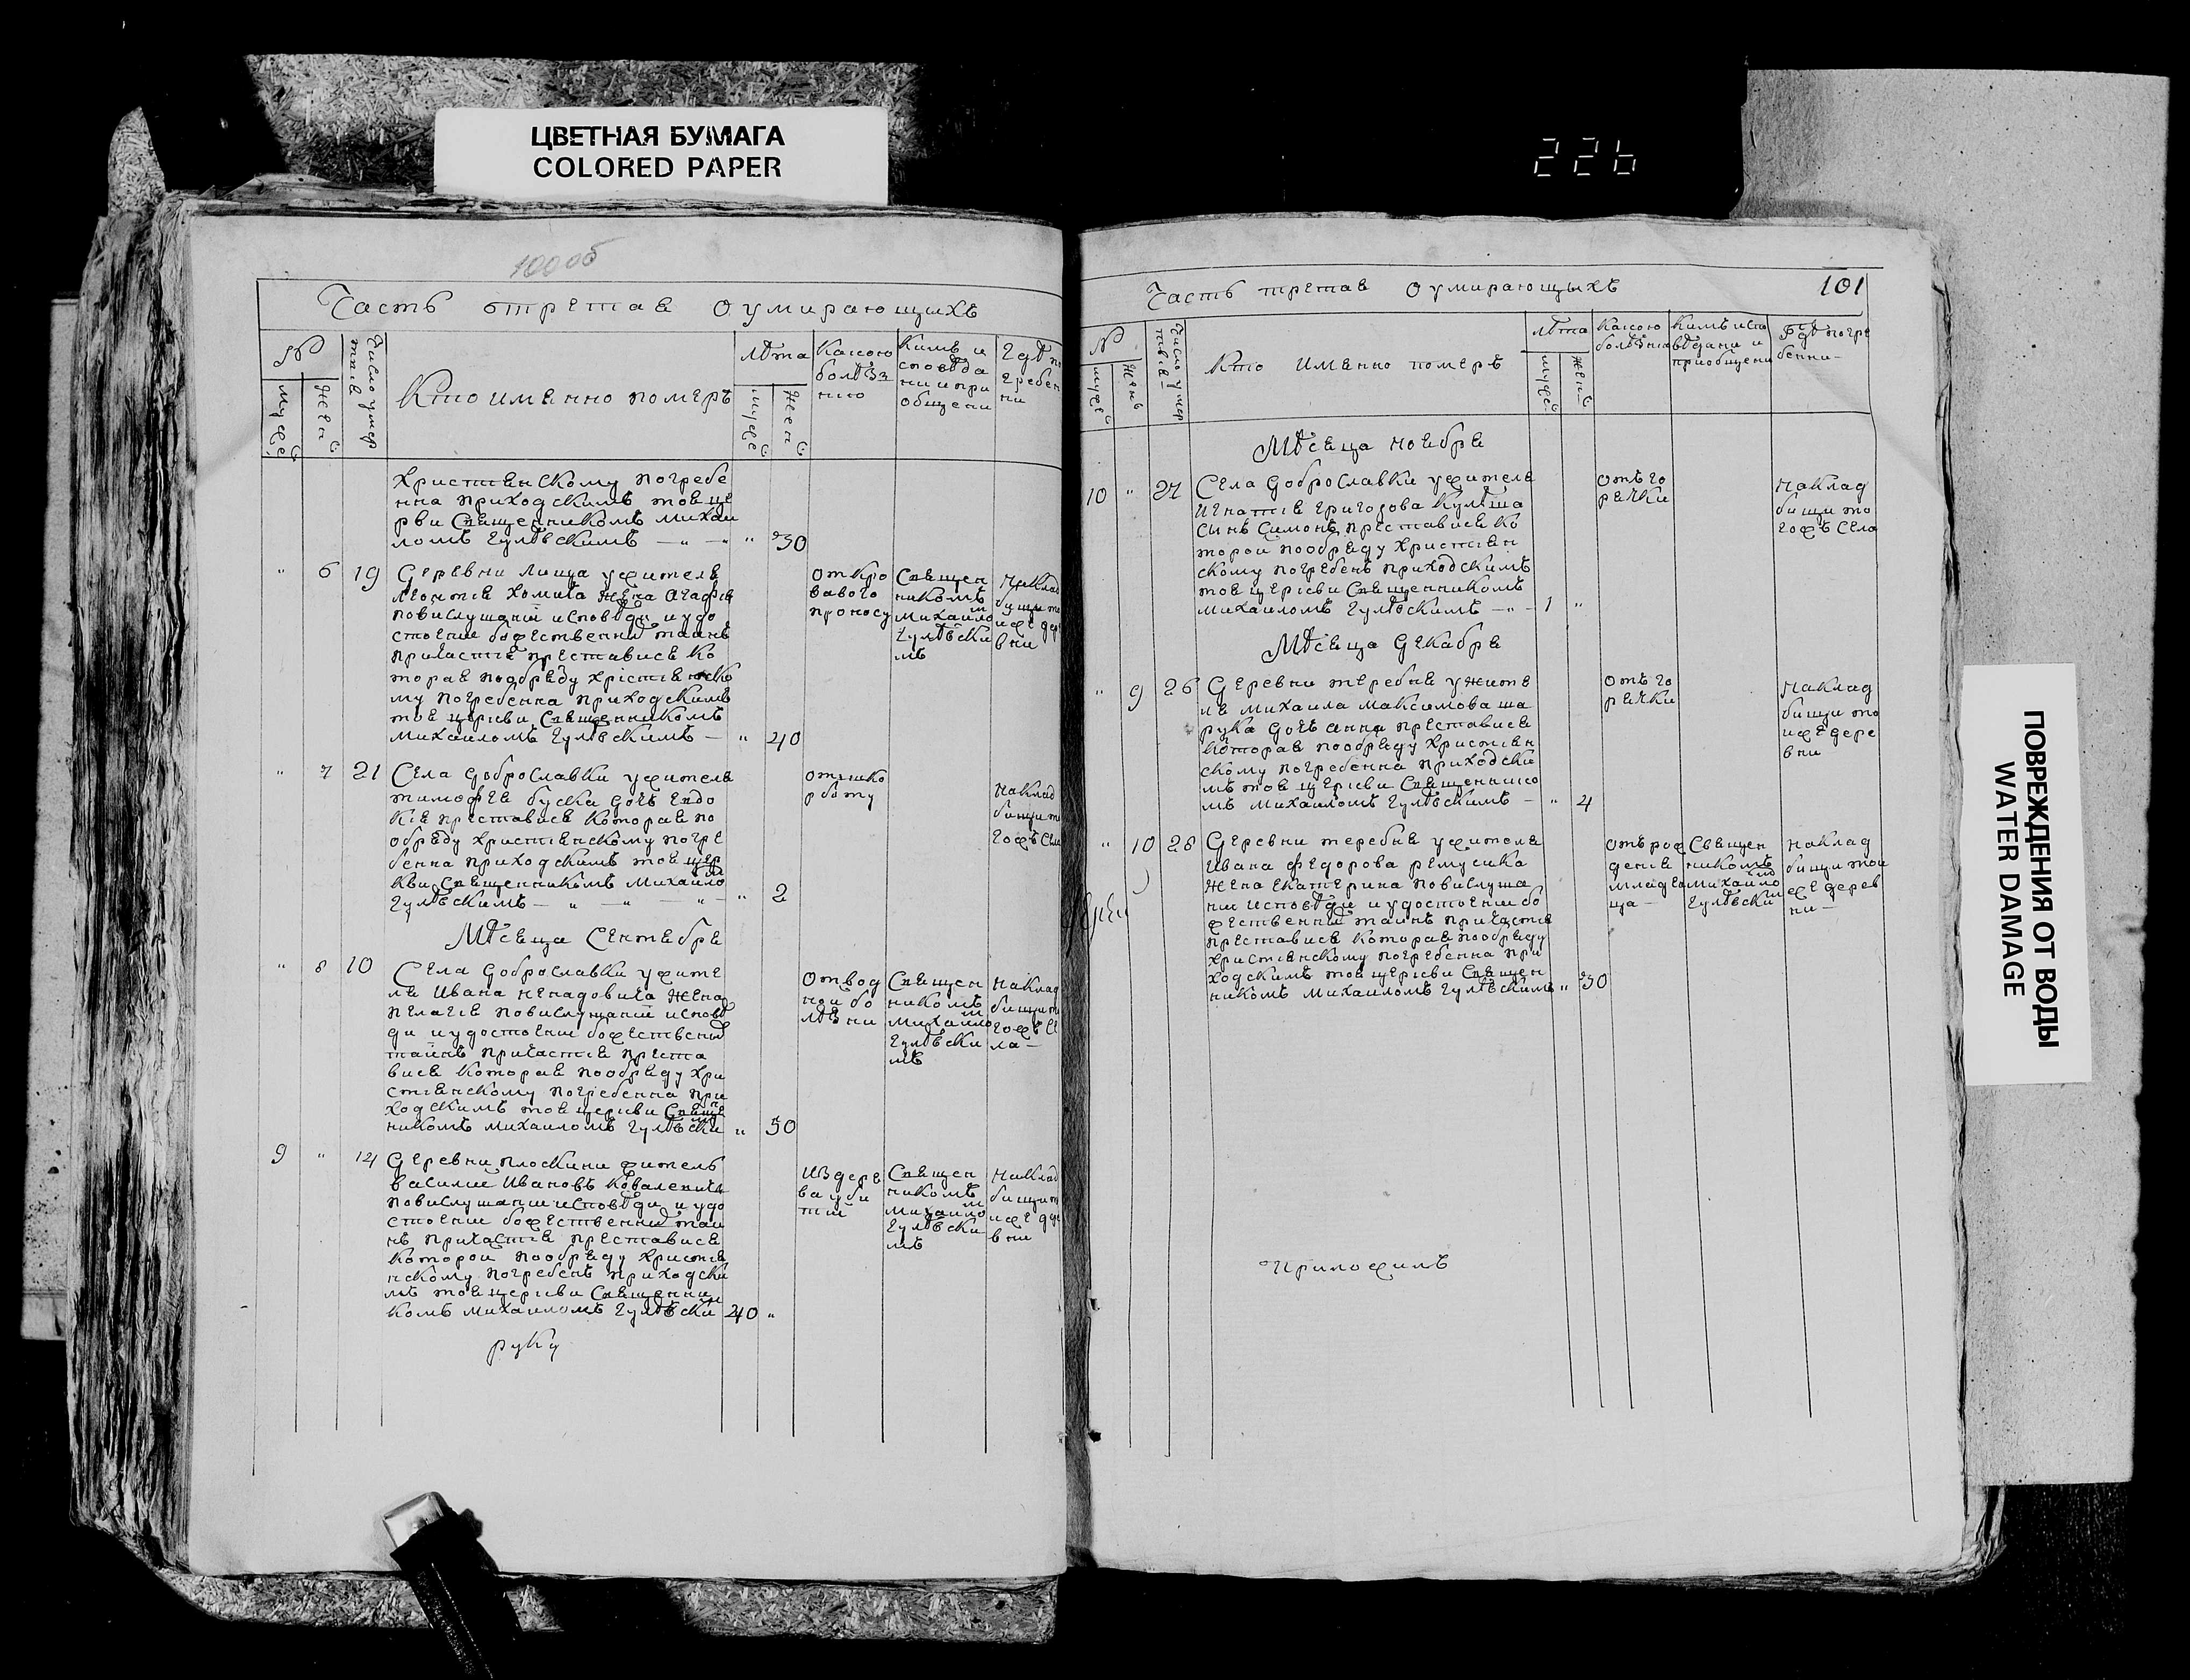 ЦВЕТНАЯ БУМАГА
COLORED PAPER
226
100 об
Часть отретая О умирающихъ
№
муже
жен
Число умер
ших
Кто именно померъ
лѣта
муже
жен
Какою
болѣз
нию
Кимъ и
сповѣда
ни и при
общени
Гдѣ по
гребен
ни
Християнскому погребе
нна приходскимъ тоя це
ркви Священникомъ Михаи
ломъ Гулѣвскимъ — " — " " 30
" 6 19 Деревни Лища ужителя
Леонтия Хомича жена Агафия
повислушании исповѣди и удо
стоение божественни таинъ
причастия преставися ко
торая пообряду христиенско
му погребенна приходскимъ
тоя церкви Священникомъ
Михаиломъ Гулѣвскимъ — " 40
от кро
вавого
проносу
Священ
никомъ
Михаило
Гулѣвски
мъ
наклад
бищи то
ижъ дере
вни
" 7 21 Села Доброславки ужителя
тимофея буска дочъ Евдо
кия преставися которая по
обряду Християнскому погре
бенна приходскимъ тоя цер
кви Священникомъ Михаило
Гулѣвскимъ — " — " — " — " 2
наклад
бищи то
гожъ села
Мѣсяца Сентября
" 8 10 Села Доброславки ужите
ля Ивана Ненадовича жена
пелагия повислушании исповѣ
ди и удостоение божествени
таинъ причастия преста
вися которая пообряду хри
стиянскому погребенна при
ходскимъ тоя церкви Священ
никомъ Михаиломъ Гулѣвски " 50
От вод
нои бо
лѣзни
Священ
никомъ
Михаило
Гулѣвски
мъ
наклад
бищи то
гожъ се
ла —
9 " 14 Деревни плоскини житель
василие Ивановъ Коваленичъ
повислушании исповѣди и удо
стоение божественни таи
нъ причастия преставися
которои пообряду христия
нскому погребенъ приходски
мъ тоя церкви Священни
комъ Михаиломъ Гулѣвски 40 "
Из дере
ва уби
тии
Священ
никомъ
Михаило
Гулѣвски
мъ
наклад
бищи то
ижъ дере
вни
руку
Часть третая О умирающыхъ 101
№
муже
жень
Число умер
шихъ
Кто именно померъ
лѣта
муже
жен
Какою
болѣзню
Кимъ испо
вѣдани и
приобщени
Гдѣ погре
бенни —
Мѣсяца ноября
10 " 27 Села Доброславки ужителя
Игнатия Григорова Кулѣша
сынъ Симонъ преставися ко
торои пообряду Християн
скому погребенъ приходскимъ
тоя церкви Священникомъ
Михаиломъ Гулѣвскимъ — " — 1 "
отъ го
рячки
наклад
бищи то
гожъ села
Мѣсяца Декабря
" 9 26 Деревни теребня ужите
ля Михаила Максимова ша
рука дочъ анна преставися
которая пообряду Християн
скому погребенна приходски
мъ тоя церкви Священнико
мъ Михаиломъ Гулѣвскимъ — " 4
отъ го
рячки
наклад
бищи то
ижъ дере
вни
" 10 28 Деревни теребня ужителя
Ивана Федорова ремусика
жена Екатерина повислуша
нии исповѣди и удостоение бо
жественни таинъ причастия
преставися которая пообряду
християнскому погребенна при
ходскимъ тоя церкви Священ
никомъ Михаиломъ Гулѣвскимъ " 30
отъ рож
дения
младен
ца —
Священ
никомъ
Михаило
Гулѣвски
наклад
бищи тои
жъ дерев
ни —
Приложилъ
ПОВРЕЖДЕНИЯ ОТ ВОДЫ
WATER DAMAGE